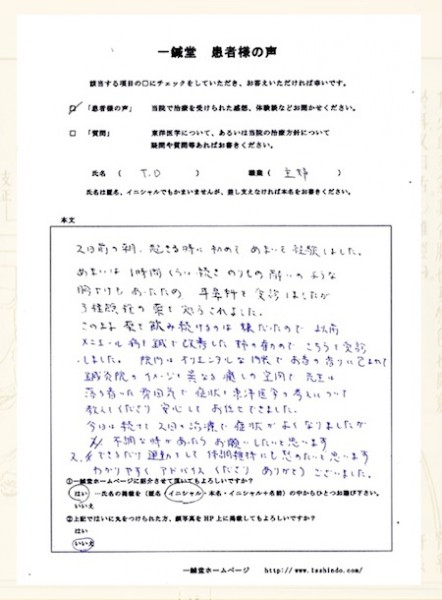 一鍼堂 患者様の声
該当する項目の□にチェックをしていただき、お答えいただければ幸いです。
「患者様の声」 当院で治療を受けられた感想、体験談などお聞かせください。
□ 「質問」 東洋医学について、あるいは当院の治療方針について
疑問や質問等あればお書きください。
氏名 ( T.O ) 職業 ( 主婦 )
氏名は匿名、イニシャルでもかまいませんが、差し支えなければ本名をお書きください。
本文
2日前の朝、起きる時に初めて めまいを経験しました。
めまいは 1時間くらい続き のりもの酔いのような
あったため 耳鼻科を受診しましたが
3種類程の薬を処方されました。
このまま薬を飲み続けるのは嫌だったので 以前
メニエール病を鍼で改善した こちらを受診
しました。 院内は オリエンタルな内装で お香の香りに
鍼灸院のイメージと異なる癒しの空間で 先生は
落ち着いた雰囲気で 症状や東洋医学の考えについて
教えてくださり 安心して お任せできました。
今回は続けて2回の治療で 症状がよくなりましたが
又 不調な時があったら お願いしたいと思います
又、できるだけ運動もして 体調維持にも努めたいと思います
わかりやすく アドバイスくださり ありがとうございました。
①一鍼堂ホームページに紹介させて頂いてもよろしいですか?
はい ―氏名の掲載を (匿名・イニシャル・本名・イニシャル+名前) の中からひとつお選び下さい。
いいえ
②上記ではいに丸をつけられた方、顔写真をHP上に掲載してもよろしいですか?
はい
いいえ
一鍼堂ホームページ http://www.isshindo.com/